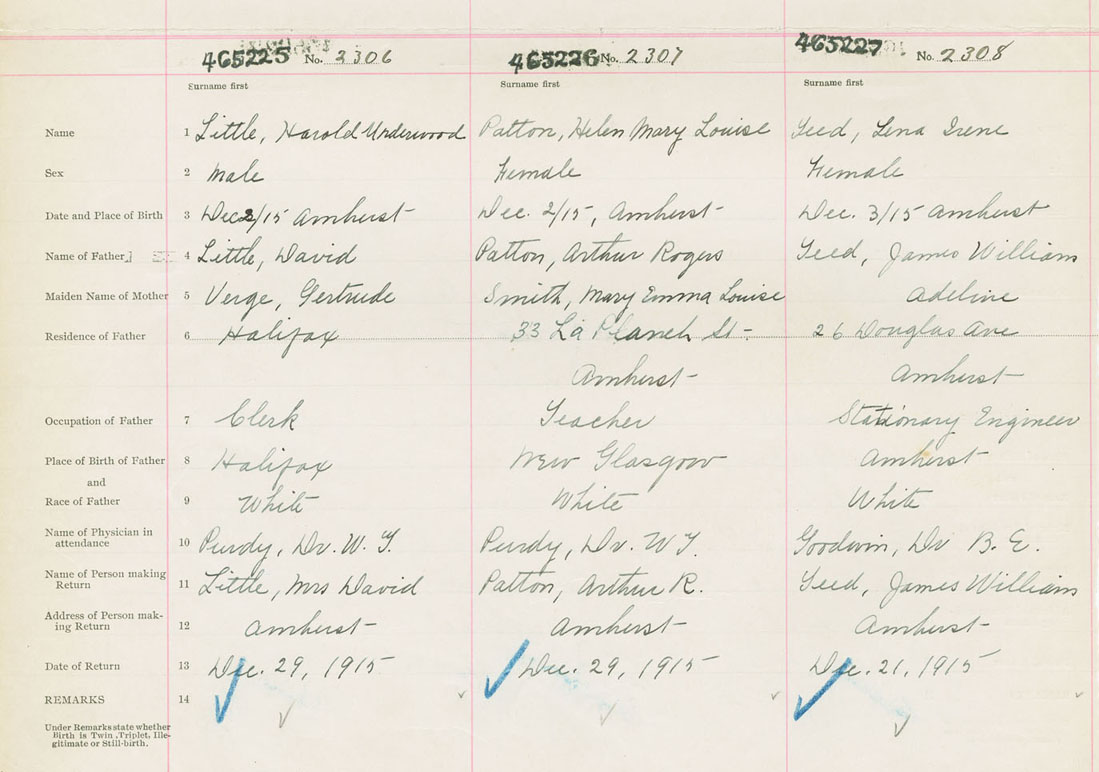 465225 No. 2306 465226 No. 2307 465227 No. 2308
Surname first Surname first Surname first
Name 1 Little, Harold Underwood Patton, Helen Mary Louise Teed, Lena Irene
Sex 2 Male Female Female
Date and Place of Birth 3 Dec 2/15 Amherst Dec. 2/15, Amherst Dec. 3/15 Amherst
Name of Father 4 Little, David Patton, Arthur Rogers Teed, James William
Maiden Name of Mother 5 Verge, Gertrude Smith, Mary Emma Louise Adeline
Residence of Father 6 Halifax 33 La Planch St. 26 Douglas Ave
Amherst Amherst
Occupation of Father 7 Clerk Teacher Stationary Engineer
Place of Birth of Father 8 Halifax New Glasgow Amherst
and
Race of Father 9 White White White
Name of Physician in
attendance 10 Purdy, Dr. W. T. Purdy, Dr. W T. Goodwin, Dr B. E.
Name of Person making
Return 11 Little, Mrs David Patton, Arthur R. Teed, James William
Address of Person mak-
ing Return 12 Amherst Amherst Amherst
Date of Return 13 Dec. 29, 1915 Dec. 29, 1915 Dec. 21, 1915
REMARKS 14
Under Remarks state whether
Birth is Twin, Triplet, Ille-
gitimate or Still-birth.